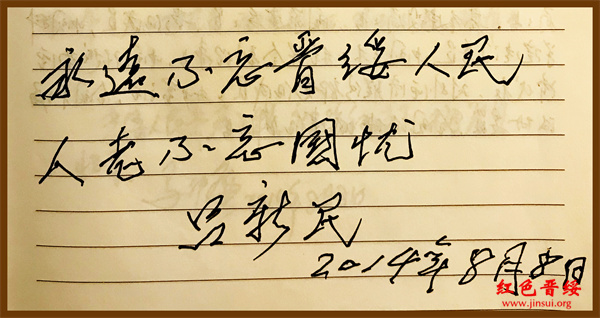 永遠不忘晋綏人民
人老不忘國忧
吕新民
2014年8月8日
红色晋绥
www.jinsui.org